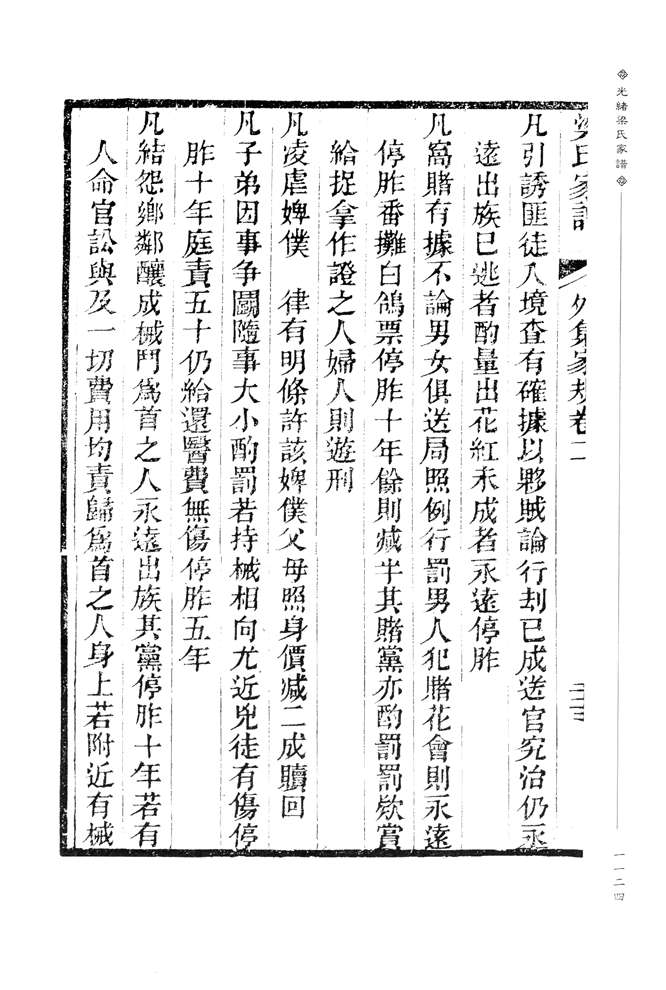 光緒梁氏家譜
梁氏家譜 外集家規卷二 三三
凡引誘匪徒入境查有確據以夥賊論行刦已成送官究治仍永
遠出族已逃者酌量出花紅未成者永遠停胙
凡窩賭有據不論男女俱送局照例行罰男人犯賭花會則永遠
停胙番攤白鴿票停胙十年餘則减半其賭黨亦酌罰罰欵賞
給捉拿作證之人婦人則遊刑
凡凌虐婢僕　律有明條許該婢僕父母照身價减二成贖回
凡子弟因事争鬪隨事大小酌罰若持械相向尤近兇徒有傷停
胙十年庭責五十仍給還醫費無傷停胙五年
凡結怨鄉鄰釀成械鬥爲首之人永遠出族其黨停胙十年若有
人命官訟與及一切費用均責歸爲首之人身上若附近有械
一一二四